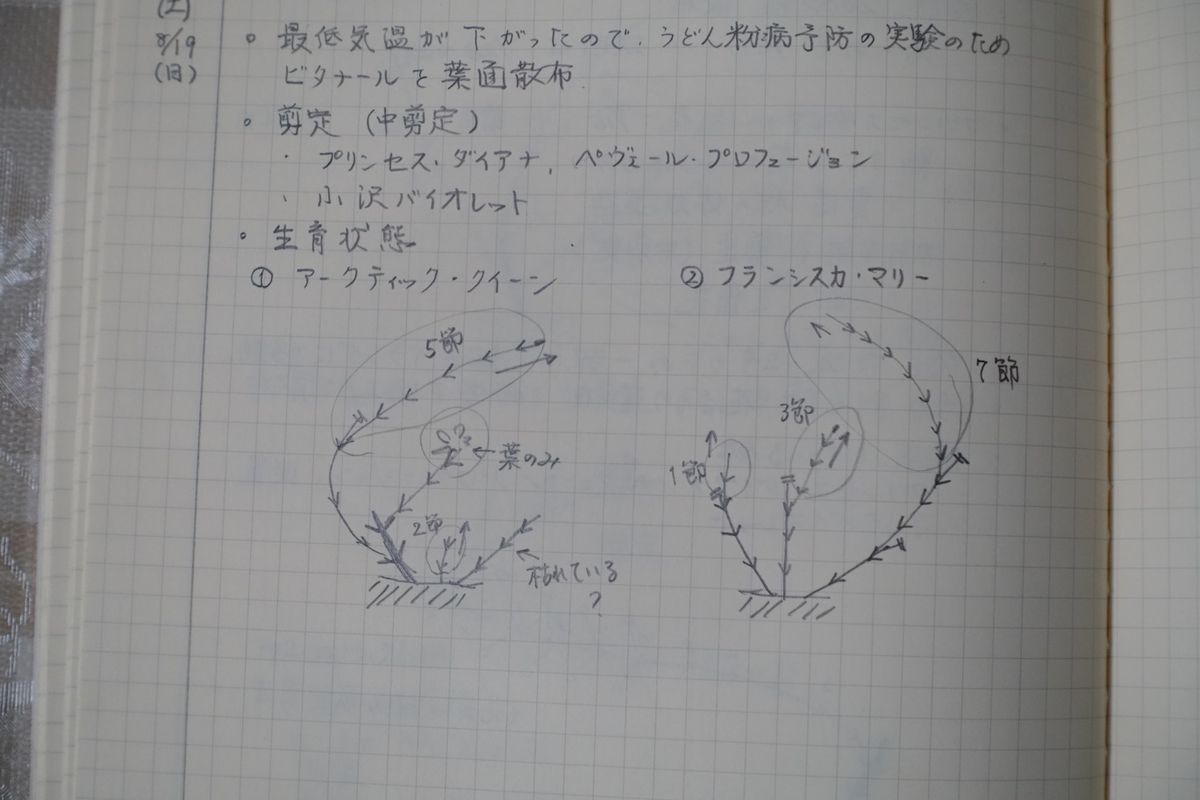 (土)
8/19
(日)
。最低気温が下がったので、うどん粉病予防の実験のため
ビタナールを葉面散布
。剪定 (中剪定)
・プリンセス・ダイアナ、ペヴェール・プロフュージョン
・小沢バイオレット
・生育状態
① アークティック・クイーン
② フランシスカ・マリー
5節
7節
3節
←葉のみ
1節
2節
枯れている
?